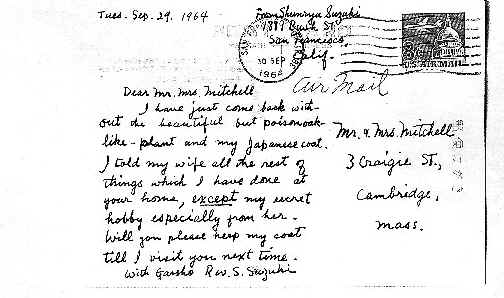 Tues. Sep. 29, 1964
From Shunryu Suzuki
1881 Bush St.
San Francisco,
Calif.
SAN FRANCISCO
30 SEP
1964
Air Mail
Dear Mr. Mrs. Mitchell
I have just come back with-
out the beautiful but poisonoak-
like-plant and my Japanese coat.
I told my wife all the rest of
things which I have done at
your home, except my secret
hobby especially from her.
Will you please keep my coat
till I visit you next time.
With Gassho Rev. S. Suzuki
Mr. & Mrs. Mitchell
3 Craigie St.,
Cambridge,
Mass.